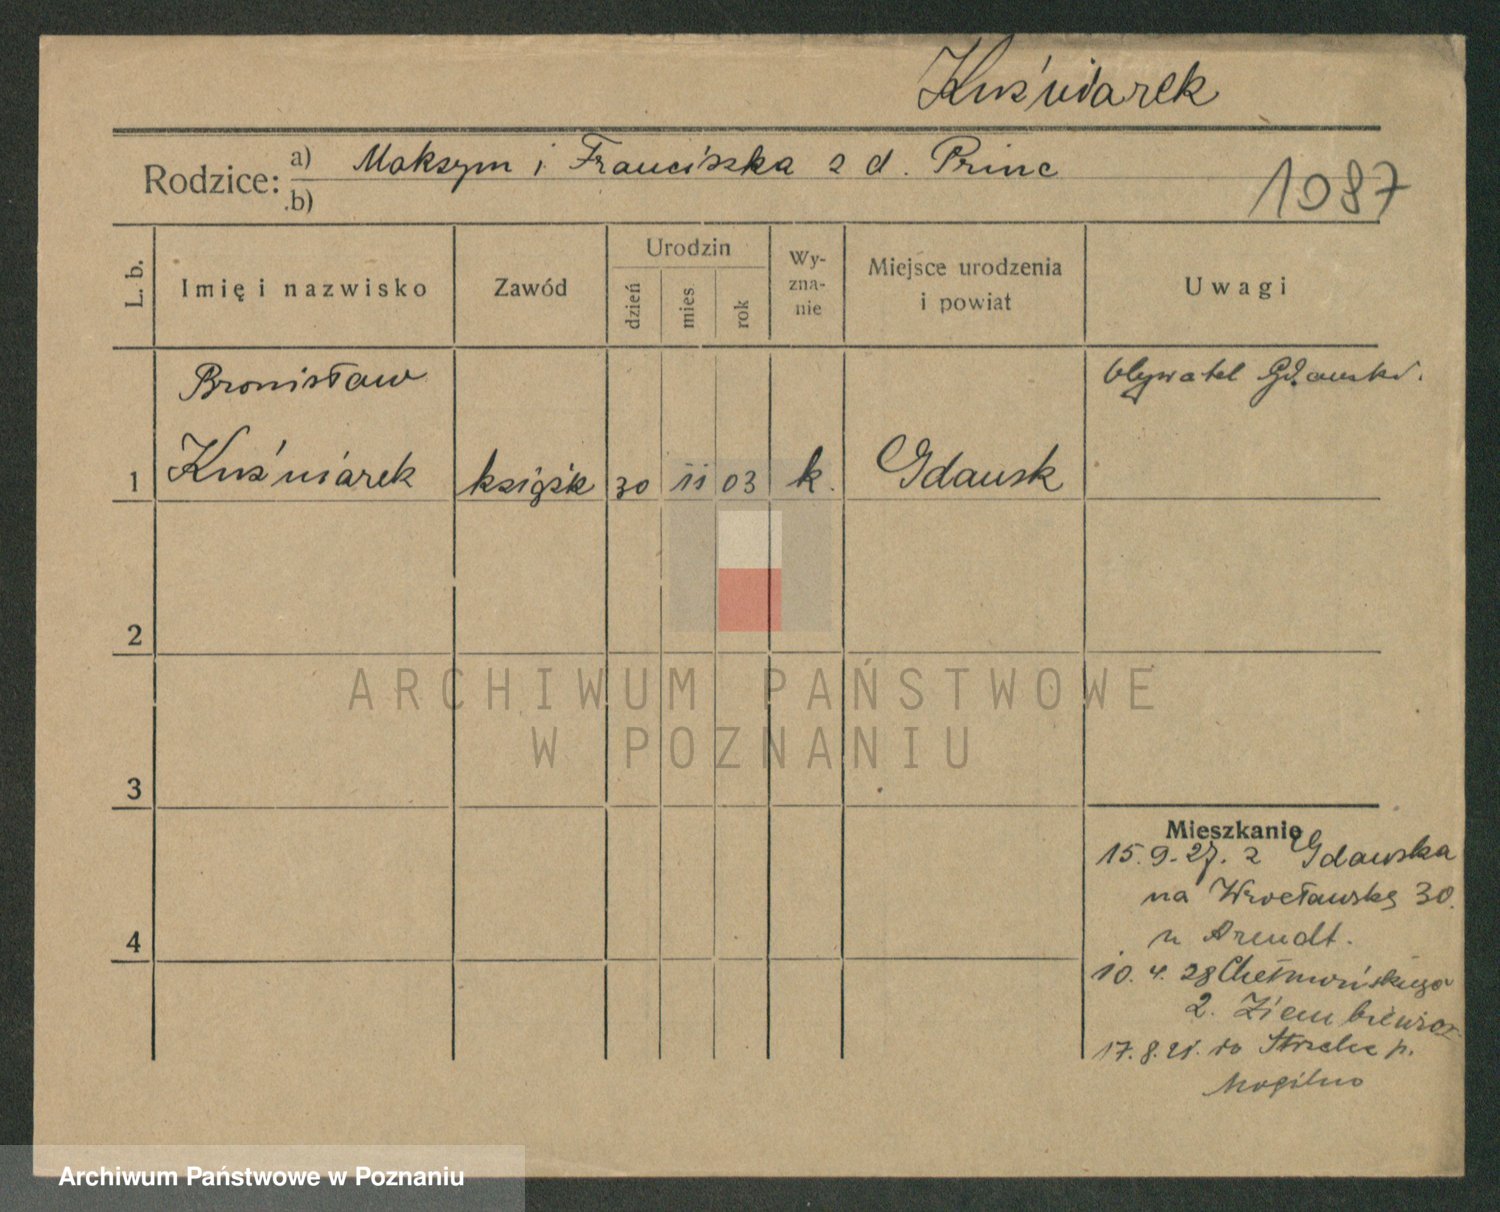 Kuśniarek
Rodzice: a) Maksym i Franciszka z d. Princ
b)
1087
L. b.
Imię i nazwisko
Zawód
Urodzin
dzień
mies
rok
Wy-
zna-
nie
Miejsce urodzenia
i powiat
Uwagi
Bronisław
Obywatel Gdański.
1 Kuśniarek książk 30 11 03 k. Gdańsk
2
ARCHIWUM PAŃSTWOWE
W POZNANIU
3
Mieszkanie
15. 9. 27. z Gdańska
na Wrocławską 30.
u Arendt.
4
10. 4. 28 Chełmońskiego
2. Ziembiewicz
17. 8. do Strzelce p.
Mogilno
Archiwum Państwowe w Poznaniu